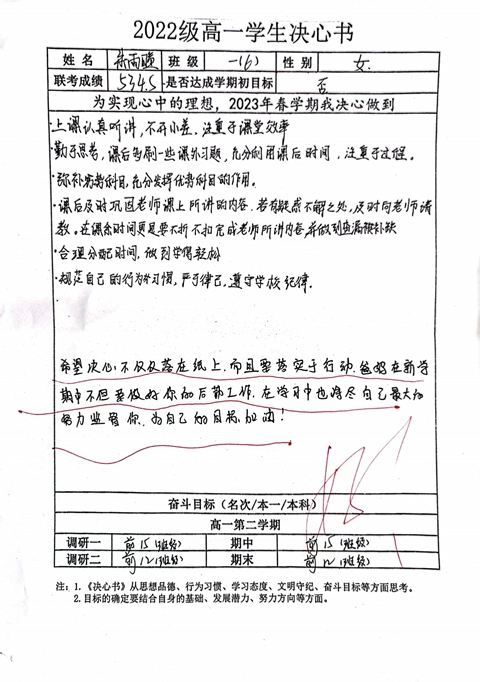 2022级高一学生决心书
姓名 班级 一(6) 性别 女
联考成绩 534.5 是否达成学期初目标 否
为实现心中的理想，2023年春学期我决心做到
·上课认真听讲，不开小差，注重于课堂效率
·勤于思考，课后多刷一些课外习题，充分利用课后时间，注重于过程。
·弥补弱势科目，充分发挥优势科目的作用。
·课后及时巩固老师课上所讲的内容，若有疑惑不解之处，及时向老师请
教。在课余时间更是要不折不扣完成老师所讲内容，并做到查漏补缺
·合理分配时间，做到学得轻松
·规范自己的行为习惯，严于律己，遵守学校纪律.
希望决心不仅仅落在纸上，而且要落实于行动.爸妈在新学
期中不但要做好你的后勤工作，在学习中也将尽自己最大的
努力监督你，为自己的目标加油！
奋斗目标（名次/本一/本科）
高一第二学期
调研一 前15(班级) 期中 前15(班级)
调研二 前12(班级) 期末 前12(班级)
注：1.《决心书》从思想品德、行为习惯、学习态度、文明守纪、奋斗目标等方面思考。
2.目标的确定要结合自身的基础、发展潜力、努力方向等方面。